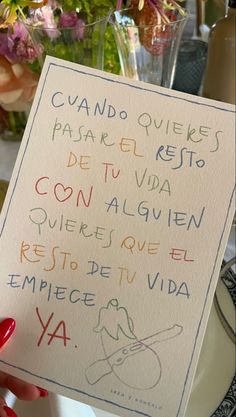 CUANDO QUIERES
PASAR EL RESTO
DE TU VIDA
CON ALGUIEN
QUIERES QUE EL
RESTO DE TU VIDA
EMPIECE
YA.